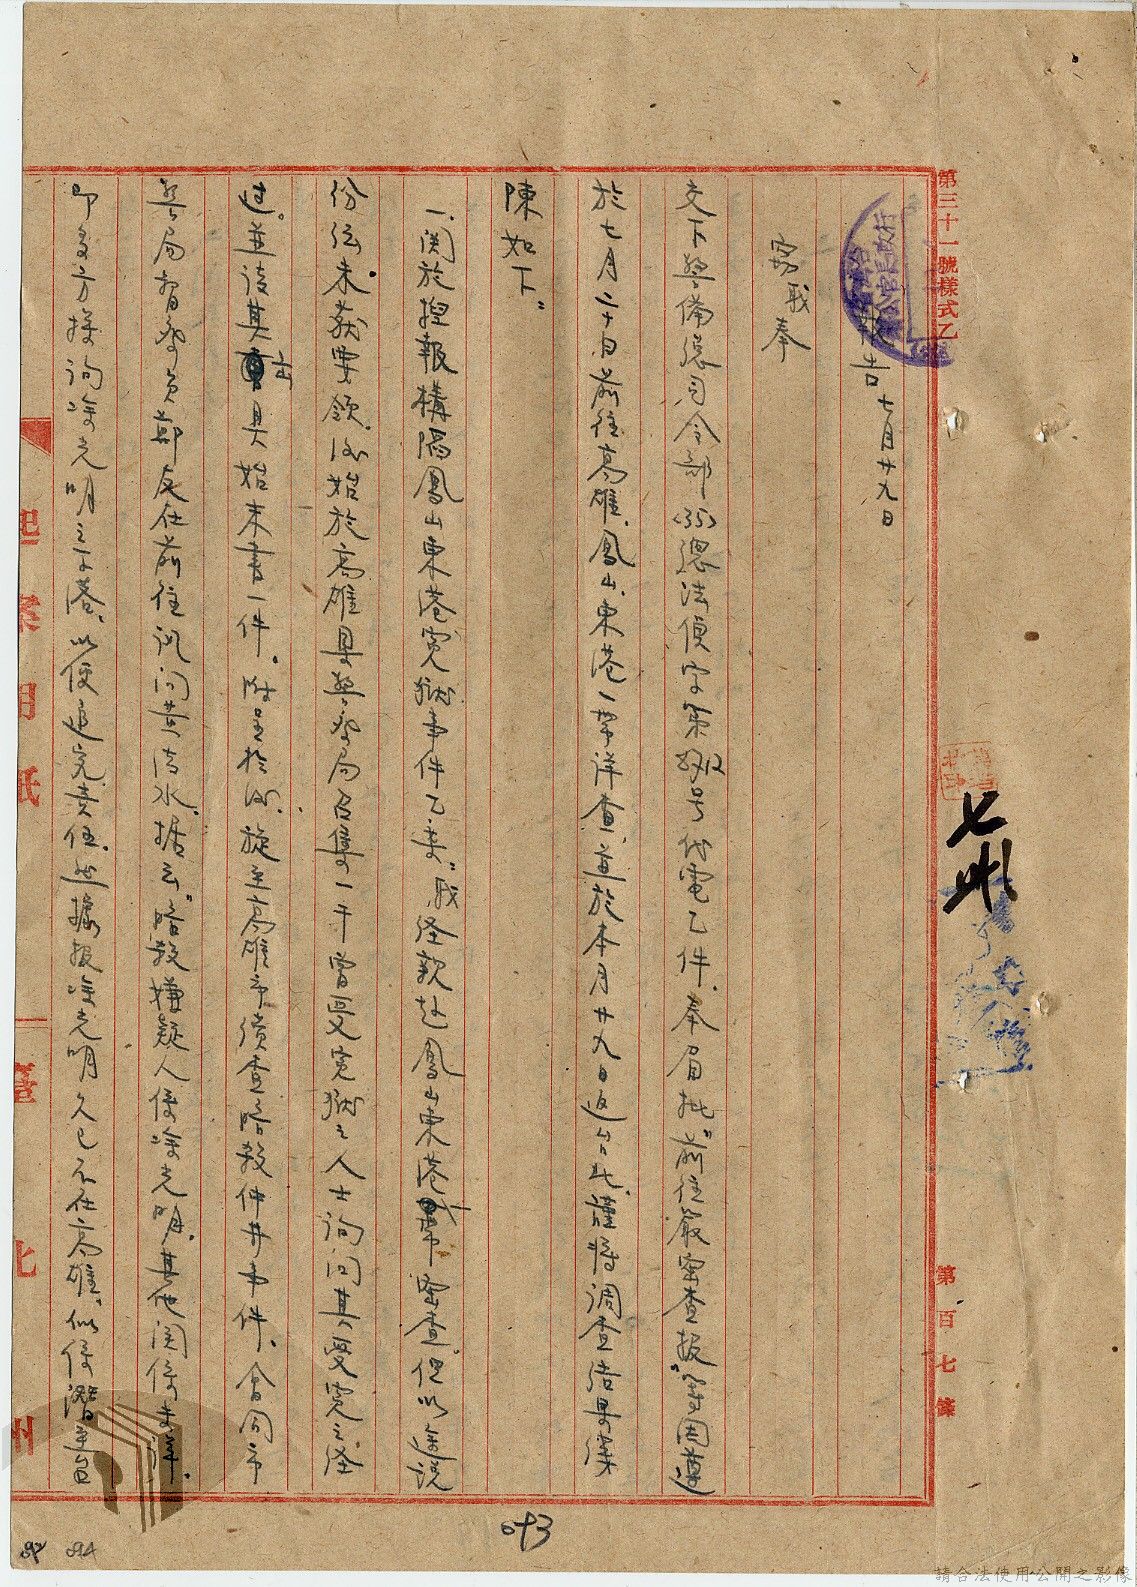 第三十一號樣式乙
第百七條
報告 七月廿九日
竊職奉
交下警備總司令部(35)總法偵字第 號代電乙件，奉眉批“前往嚴密查報”等因遵
於七月二十日前往高雄、鳳山、東港一帶詳查，並於本月廿九日返台北，謹將調查結果謹
陳如下：
一、関於捏報構陷鳳山東港冤獄事件乙案：職經親赴鳳山東港一帶密查，但以途說
份紜，未獲要領，後始於高雄縣警察局召集一干曾受冤獄之人士詢問其受冤之經
过。並請其 出具始末書一件。附呈於後，旋至高雄市續查暗殺仲井事件，會同市
警局督察員鄭友仕前往訊問黃清水，據云“暗殺嫌疑人係凃光明，其他関係未詳。
即多方探詢凃光明之下落，以便追究責任。然據报凃光明久已不在高雄，似係潛逃台
起案用紙
臺北州
七
093
094
092
請合法使用公開之影像